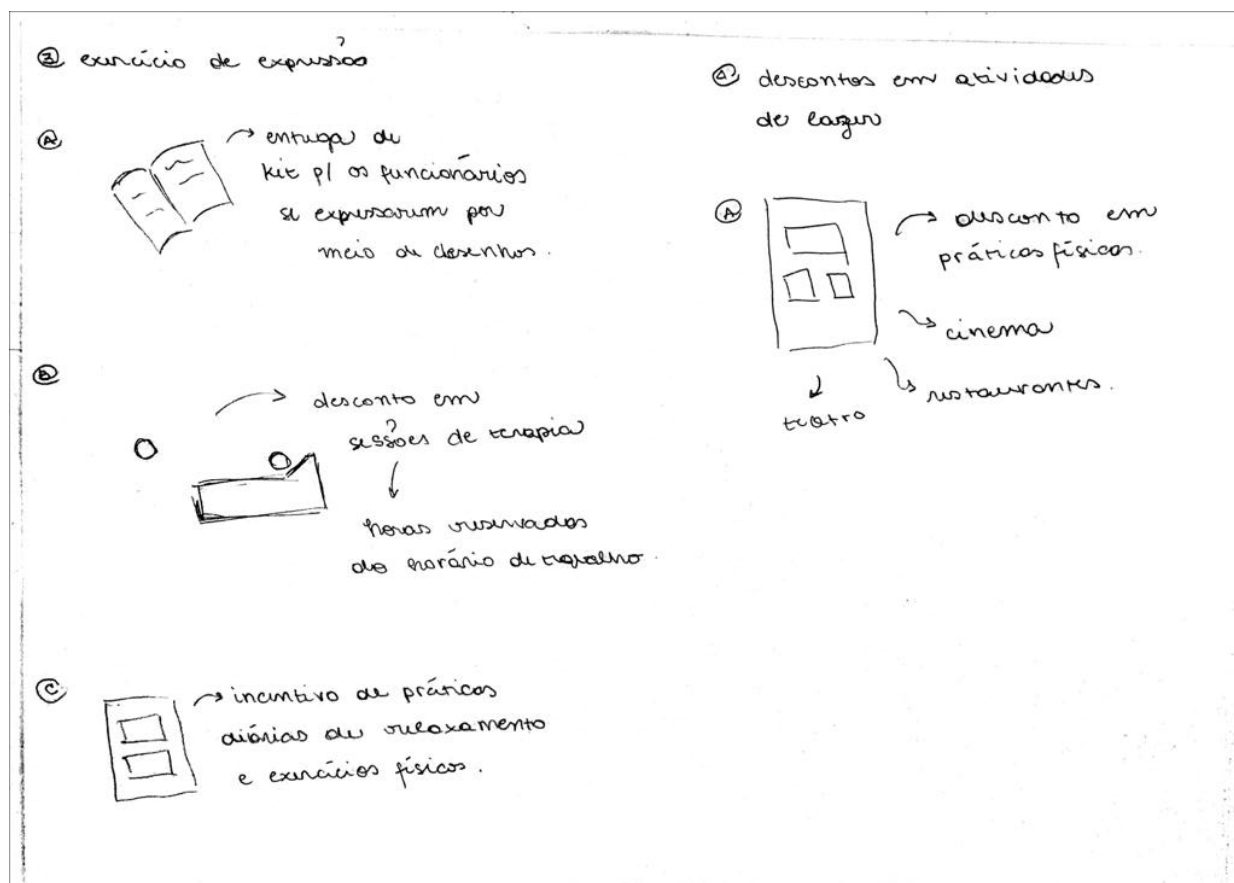 3 exercício de expressão
A
entrega de
kit p/ os funcionários
se expressarem por
meio de desenhos.
B
desconto em
sessões de terapia
horas reservadas
do horário de trabalho.
C
incentivo de práticas
diárias de relaxamento
e exercícios físicos.
4 descontos em atividades
de lazer
A
desconto em
práticas físicas.
cinema
restaurantes.
teatro